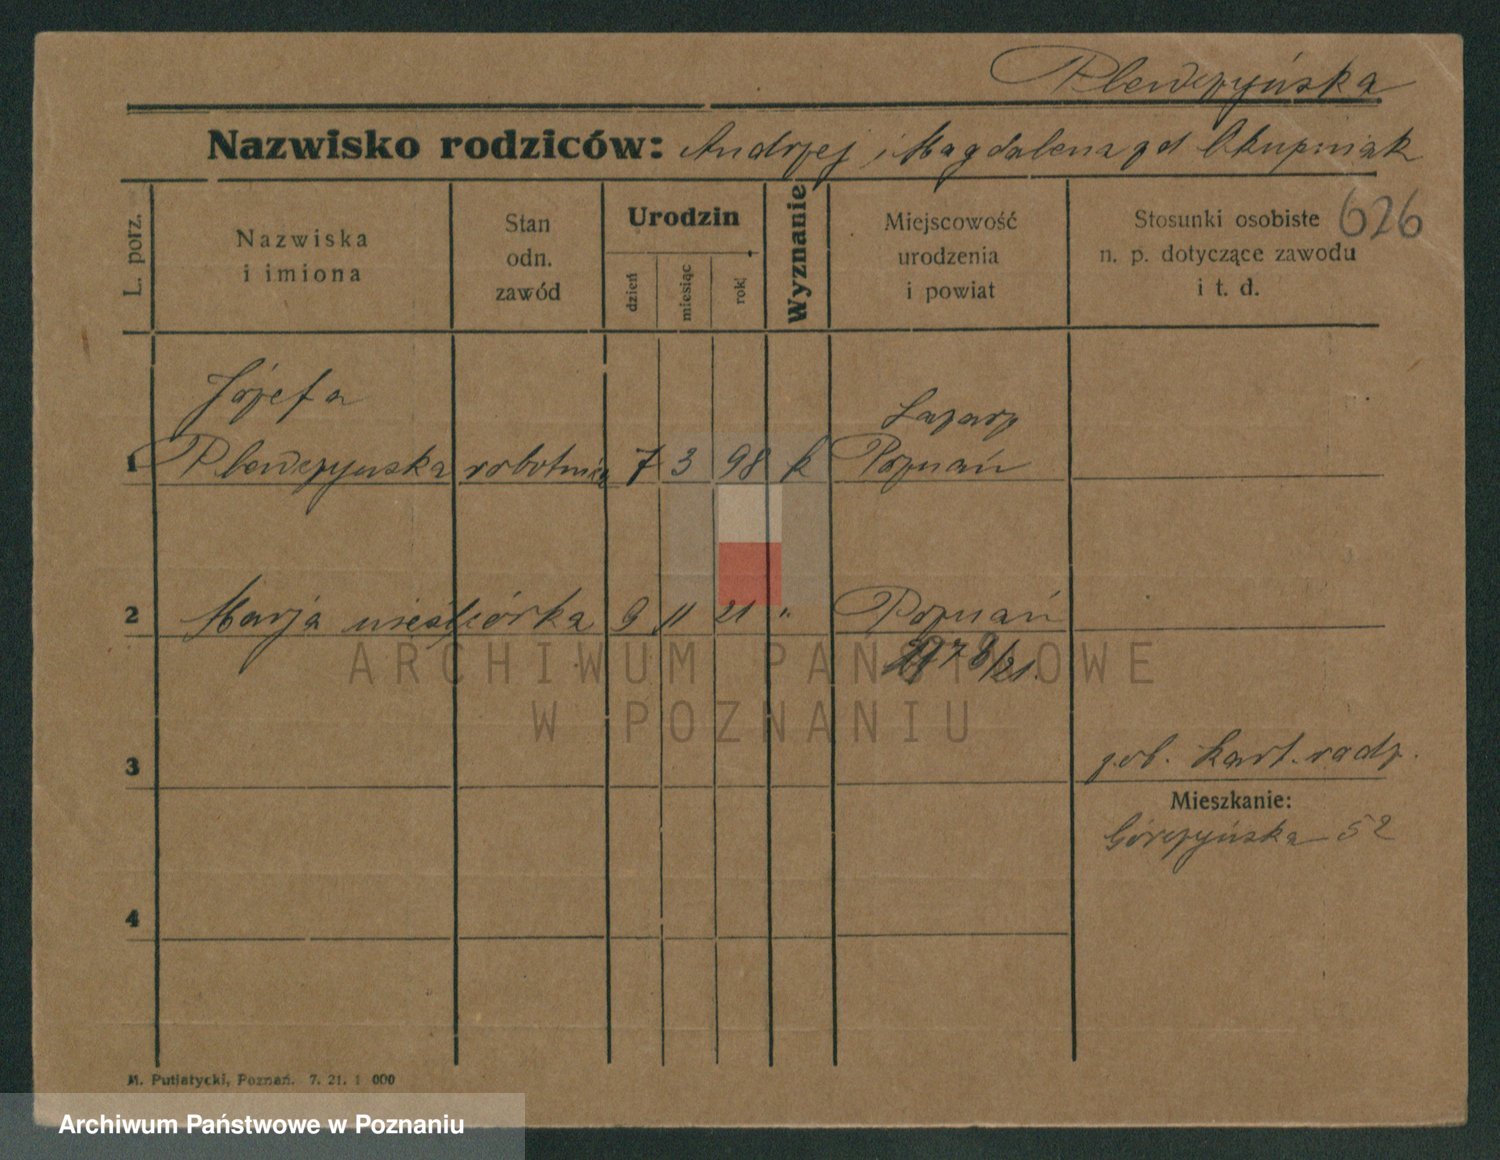 Plewczyńska
Nazwisko rodziców: Andrzej i Magdalena zd Skupniak
L. porz.
Nazwiska
i imiona
Stan
odn.
zawód
Urodzin
dzień
miesiąc
rok
Wyznanie
Miejscowość
urodzenia
i powiat
Stosunki osobiste 626
n. p. dotyczące zawodu
i t. d.
Józefa
Łazarz
1 Plewczynska robotnica 7 3 98 k Poznań
2 Marja nieśl. córka 9 11 21 " Poznań
ARCHIWUM PAŃSTWOWE
W POZNANIU
3
zob. kart. rodz.
Mieszkanie:
Górczyńska 52
4
M. Putiatycki, Poznań. 7. 21. 1 000
Archiwum Państwowe w Poznaniu